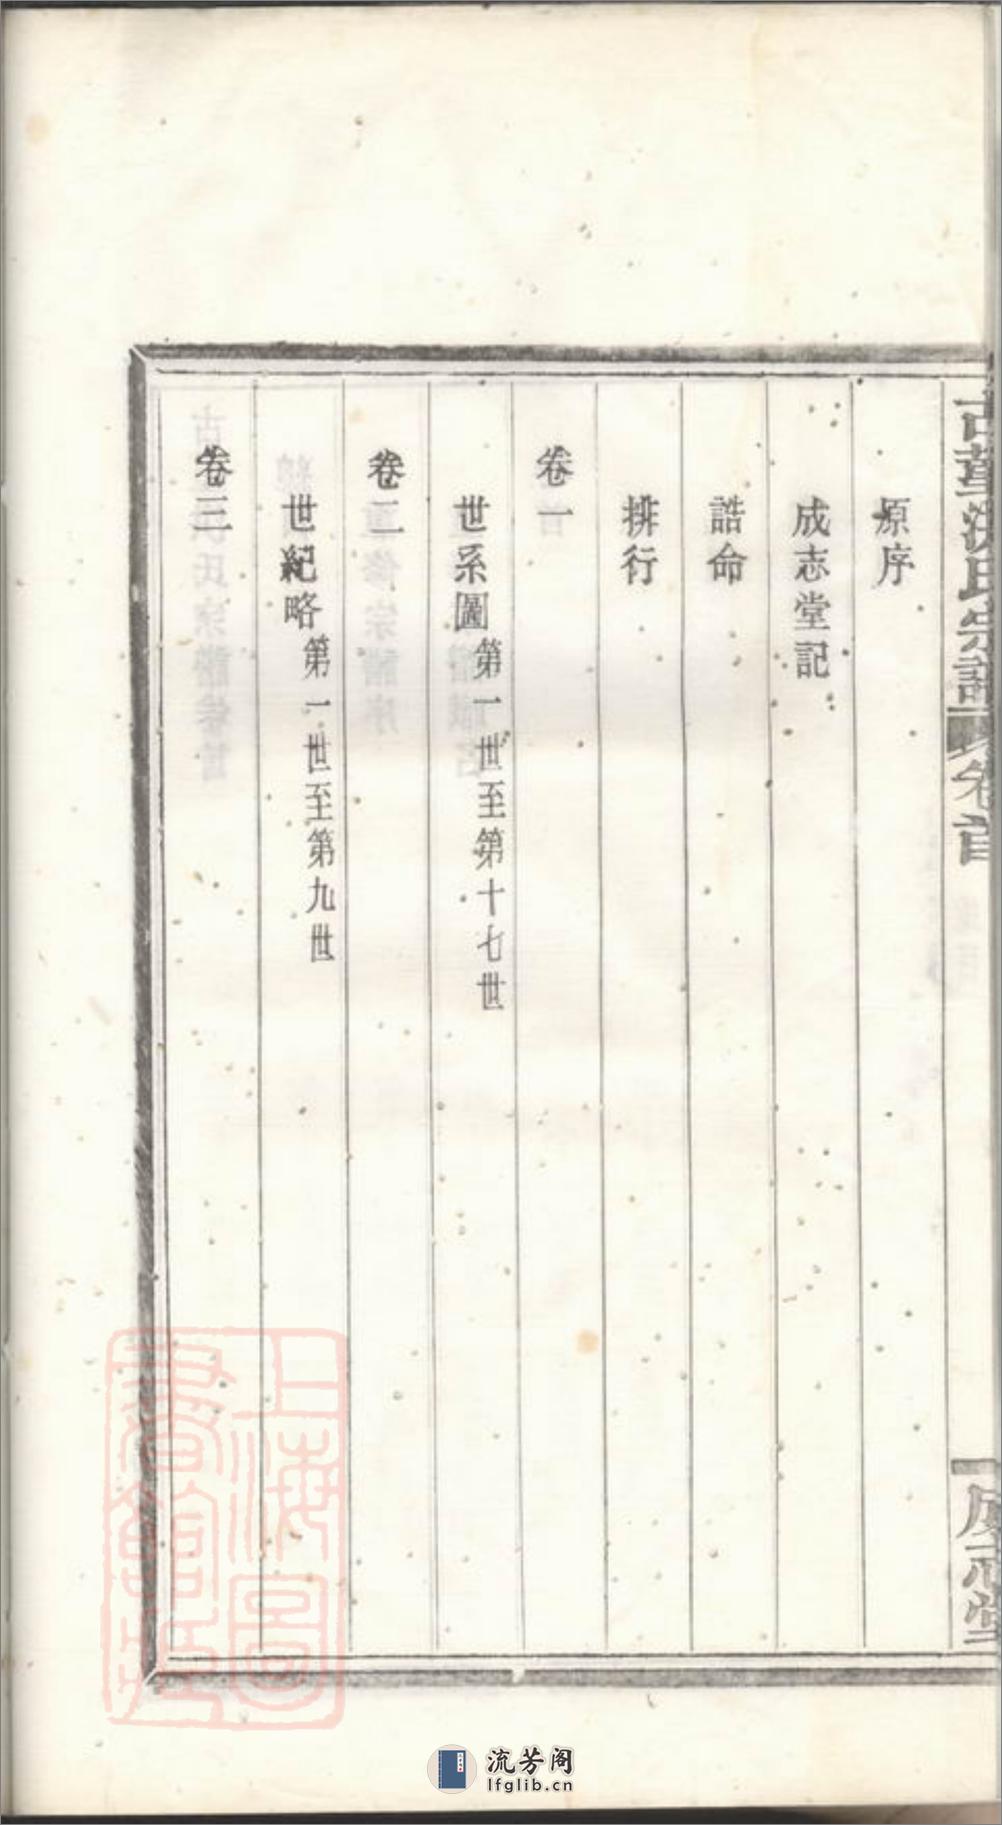 古華洪氏宗譜 卷首
成志堂
原序
成志堂記
誥命
排行
卷一
世系圖 第一世至第十七世
卷二
世紀略 第一世至第九世
卷三
上海圖書館藏
流芳阁
lfglib.cn